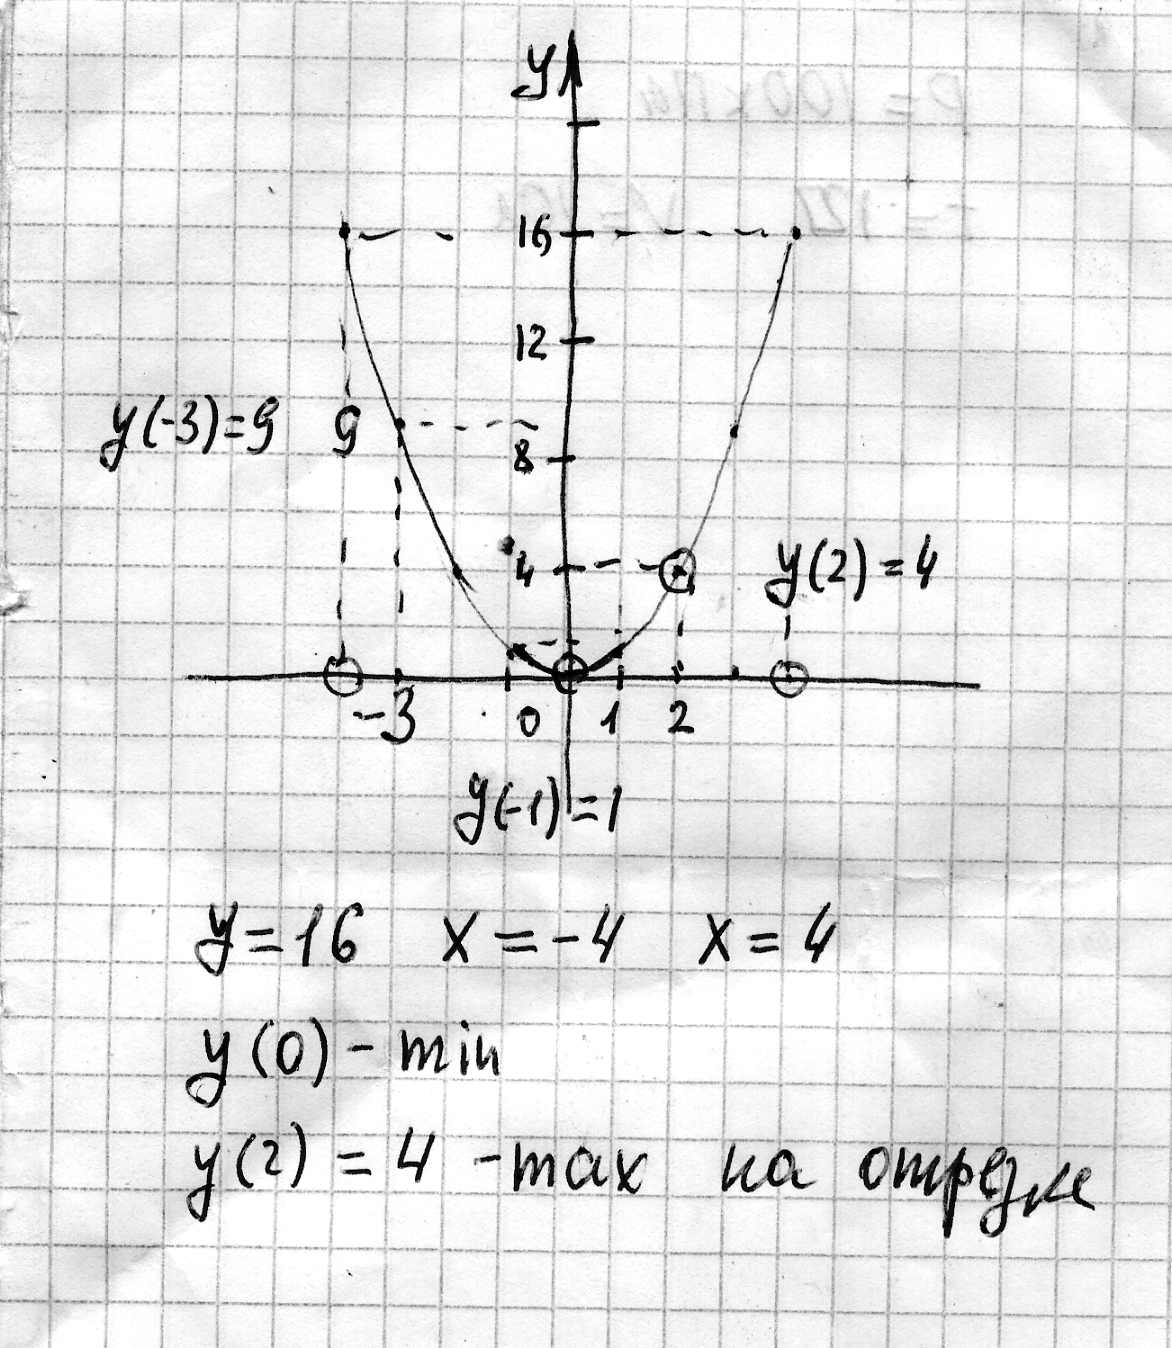 y
16
12
y(-3)=9 9
8
4 y(2)=4
-3 0 1 2
y(-1)=1
y=16 x=-4 x=4
y(0)-min
y(2)=4 -max на отрезке